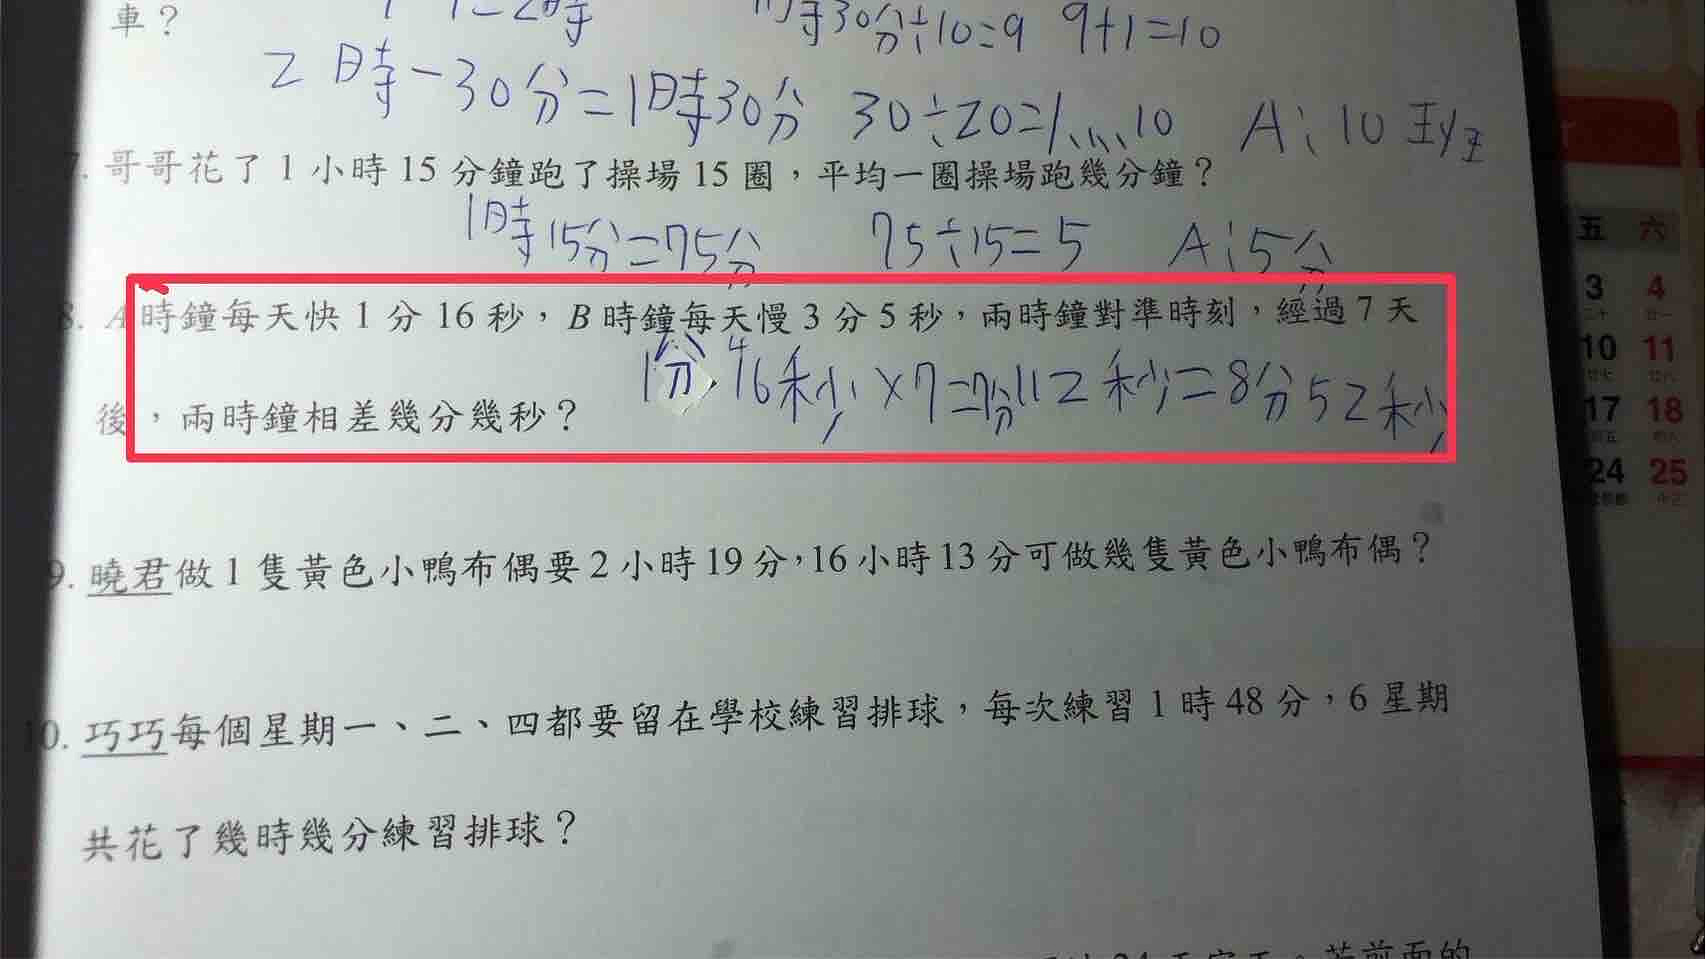 車？
時30分÷10=9 9+1=10
2時-30分=1時30分 30÷20=1……10 A:10
7. 哥哥花了1小時15分鐘跑了操場15圈，平均一圈操場跑幾分鐘？
1時15分=75分 75÷15=5 A:5分
8. A時鐘每天快1分16秒，B時鐘每天慢3分5秒，兩時鐘對準時刻，經過7天
1分16秒×7=7分112秒=8分52秒
後，兩時鐘相差幾分幾秒？
9. 曉君做1隻黃色小鴨布偶要2小時19分，16小時13分可做幾隻黃色小鴨布偶？
10. 巧巧每個星期一、二、四都要留在學校練習排球，每次練習1時48分，6星期
共花了幾時幾分練習排球？
五 六
3 4
10 11
17 18
24 25